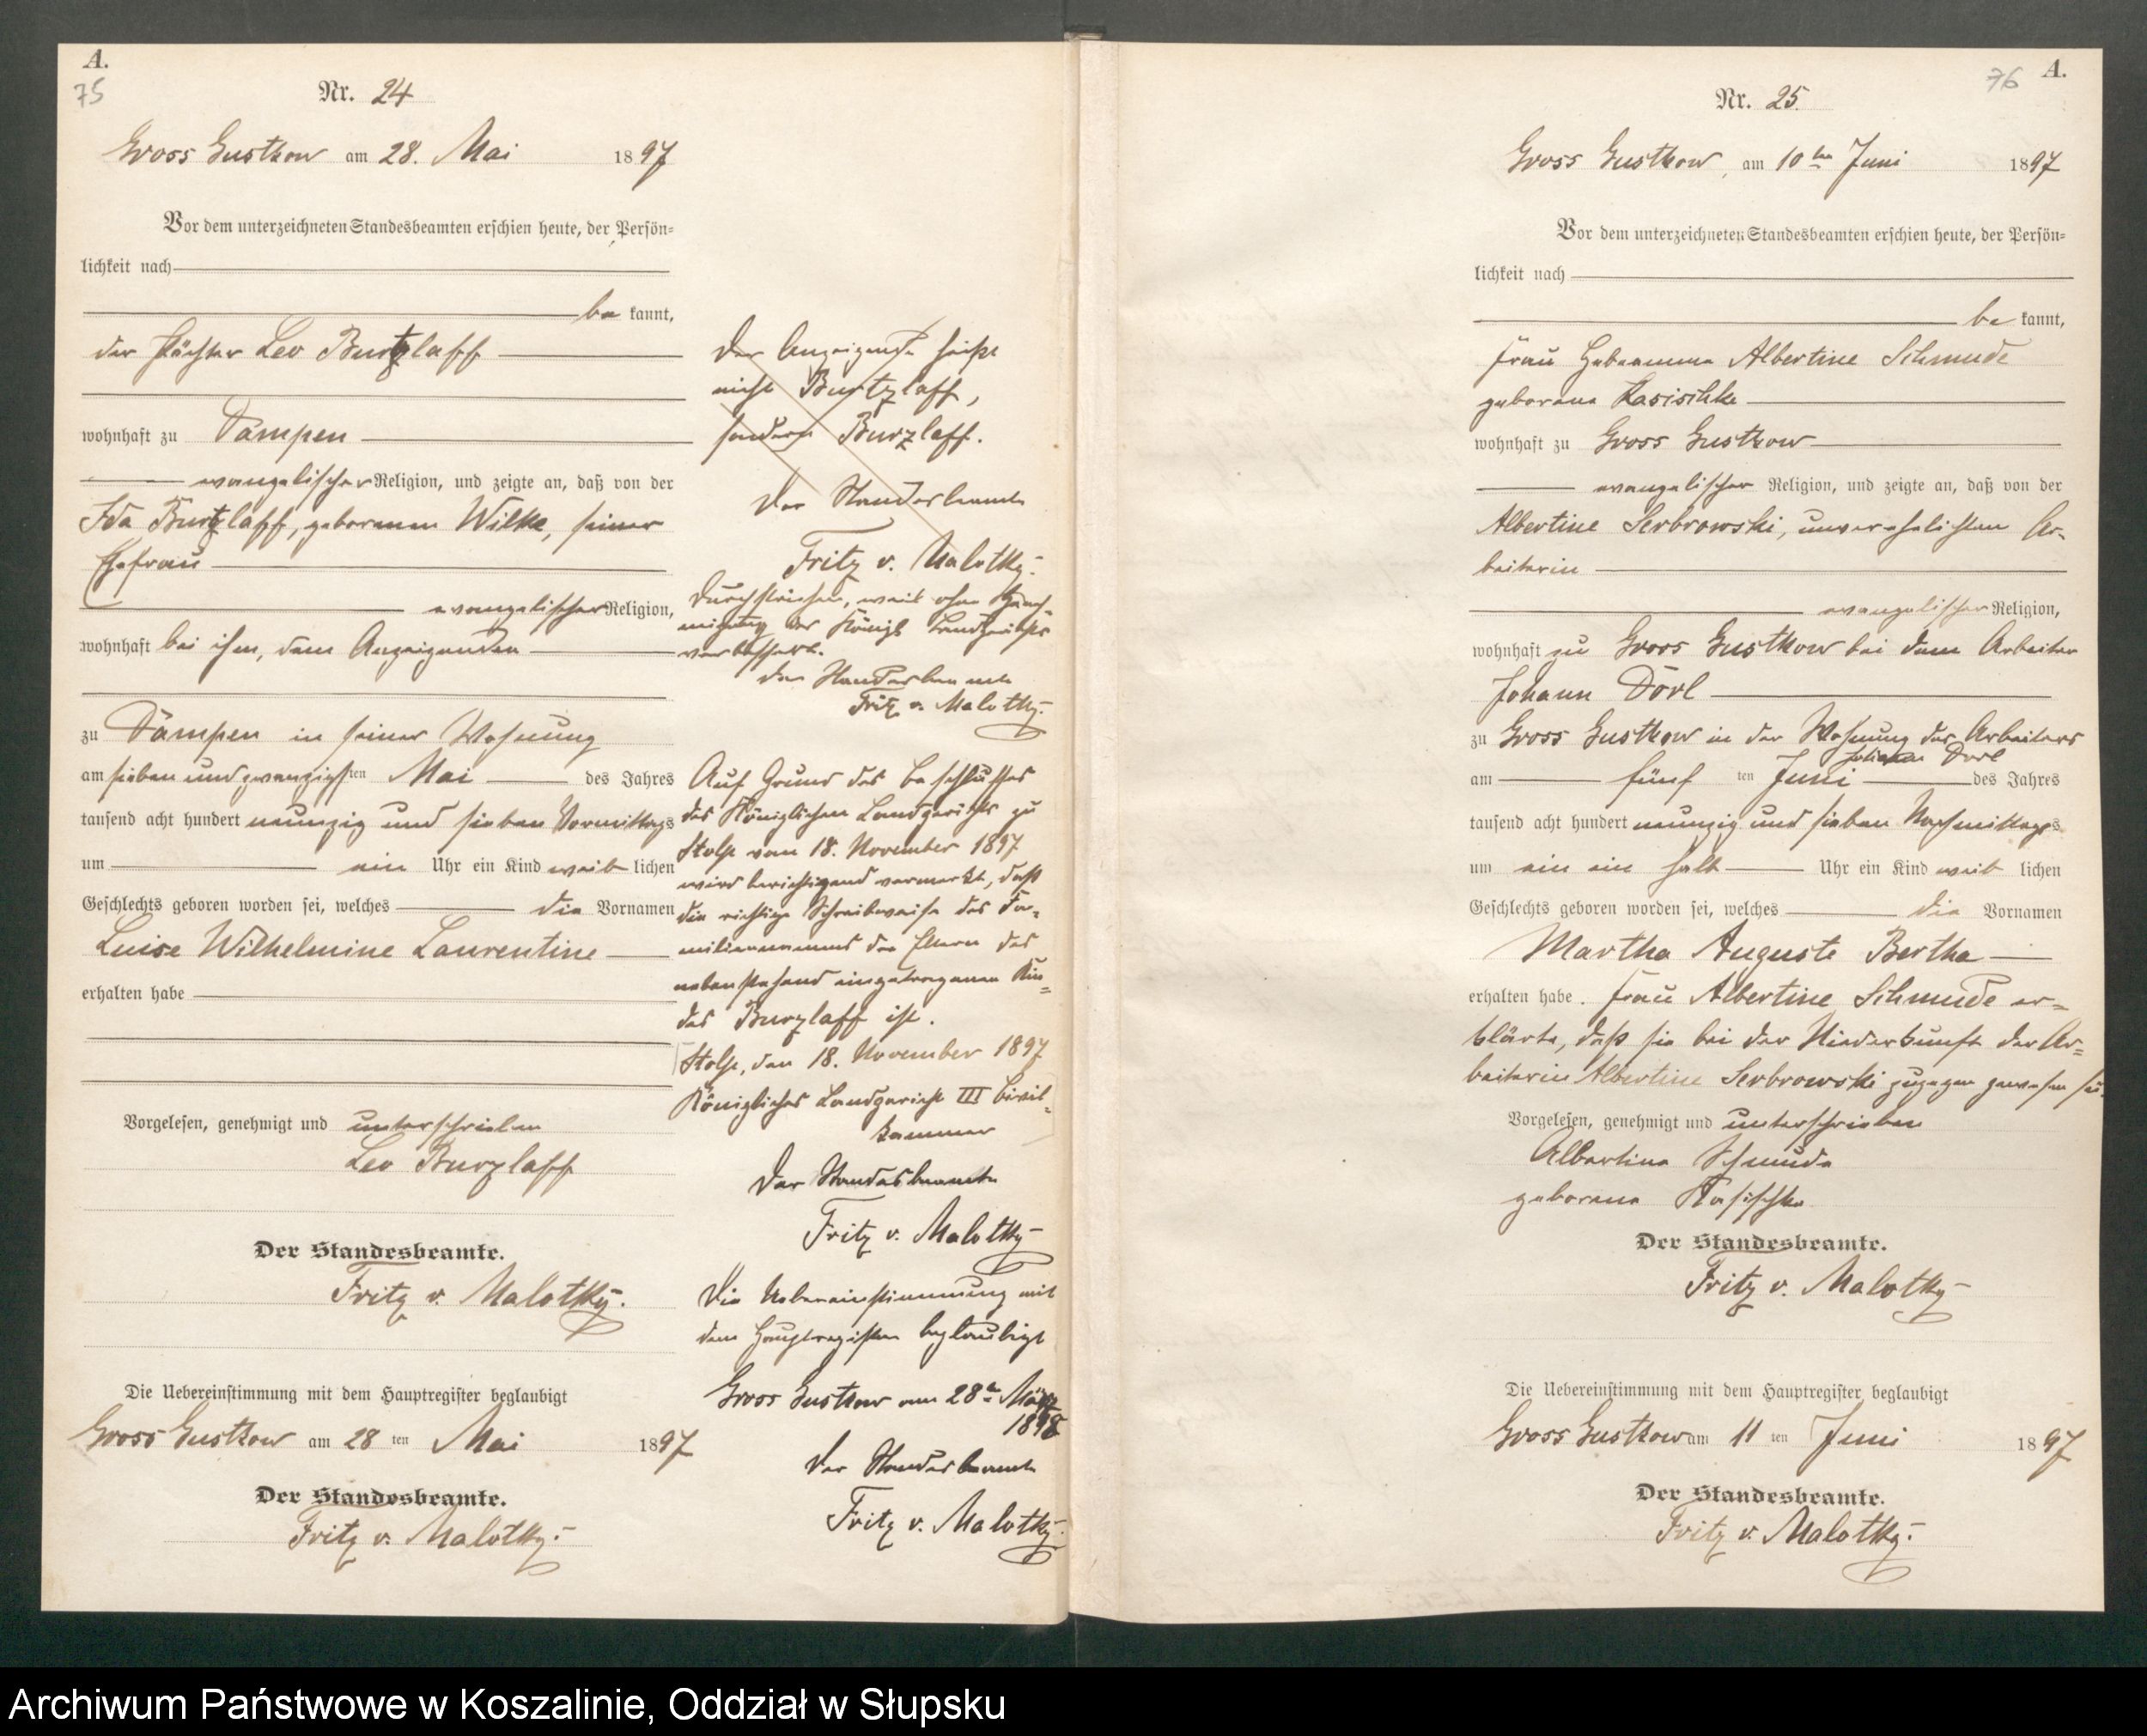 A.
75
Nr. 24
Gross Gustkow am 28. Mai 1897
Vor dem unterzeichneten Standesbeamten erschien heute, der Persön-
lichkeit nach
be kannt,
der Pächter Leo Burtzlaff
wohnhaft zu Dampen
evangelischer Religion, und zeigte an, daß von der
Ida Burtzlaff, geborenen Wilke, seiner
Ehefrau
evangelischer Religion,
wohnhaft bei ihm, dem Anzeigenden
zu Dampen in seiner Wohnung
am sieben und zwanzigsten Mai des Jahres
tausend acht hundert neunzig und sieben Vormittags
um ein Uhr ein Kind weiblichen
Geschlechts geboren worden sei, welches die Vornamen
Luise Wilhelmine Laurentine
erhalten habe
Vorgelesen, genehmigt und unterschrieben
Leo Burzlaff
Der Standesbeamte.
Fritz v. Malotky.
Die Uebereinstimmung mit dem Hauptregister beglaubigt
Gross Gustkow am 28 ten Mai 1897
Der Standesbeamte.
Fritz v. Malotky.
Der Anzeigende heißt
nicht Burtzlaff,
sondern Burzlaff.
Der Standesbeamte
Fritz v. Malotky.
Durchstrichen, weil ohne Geneh-
migung des Königl Landgerichts
verbessert.
Der Standesbeamte
Fritz v. Malotky.
Auf Grund des Beschlusses
des Königlichen Landgerichts zu
Stolp vom 18. November 1897
wird berichtigend vermerkt, daß
die richtige Schreibweise des Fa-
miliennamens der Eltern des
nebenstehend eingetragenen Kin-
des Burzlaff ist.
Stolp, den 18. November 1897
Königliches Landgericht III Civil-
kammer
Der Standesbeamte
Fritz v. Malotky
Die Uebereinstimmung mit
dem Hauptregister beglaubigt
Gross Gustkow am 28ten März
1898
Der Standesbeamte
Fritz v. Malotky.
76 A.
Nr. 25.
Gross Gustkow, am 10ten Juni 1897
Vor dem unterzeichneten Standesbeamten erschien heute, der Persön-
lichkeit nach
be kannt,
Frau Hebeamme Albertine Schmude
geborene Kasischke
wohnhaft zu Gross Gustkow
evangelischer Religion, und zeigte an, daß von der
Albertine Serbrowski, unverehelichten Ar-
beiterin
evangelischer Religion,
wohnhaft zu Gross Gustkow bei dem Arbeiter
Johann Dorl
zu Gross Gustkow in der Wohnung des Arbeiters
Johann Dorl
am fünf ten Juni des Jahres
tausend acht hundert neunzig und sieben Nachmittags
um ein ein halb Uhr ein Kind weiblichen
Geschlechts geboren worden sei, welches die Vornamen
Martha Auguste Bertha
erhalten habe. Frau Albertine Schmude er-
klärte, daß sie bei der Niederkunft der Ar-
beiterin Albertine Serbrowski zugegen gewesen sei.
Vorgelesen, genehmigt und unterschrieben
Albertine Schmude
geborene Kasischke
Der Standesbeamte.
Fritz v. Malotky
Die Uebereinstimmung mit dem Hauptregister beglaubigt
Gross Gustkow am 11 ten Juni 1897
Der Standesbeamte.
Fritz v. Malotky.
Archiwum Państwowe w Koszalinie, Oddział w Słupsku